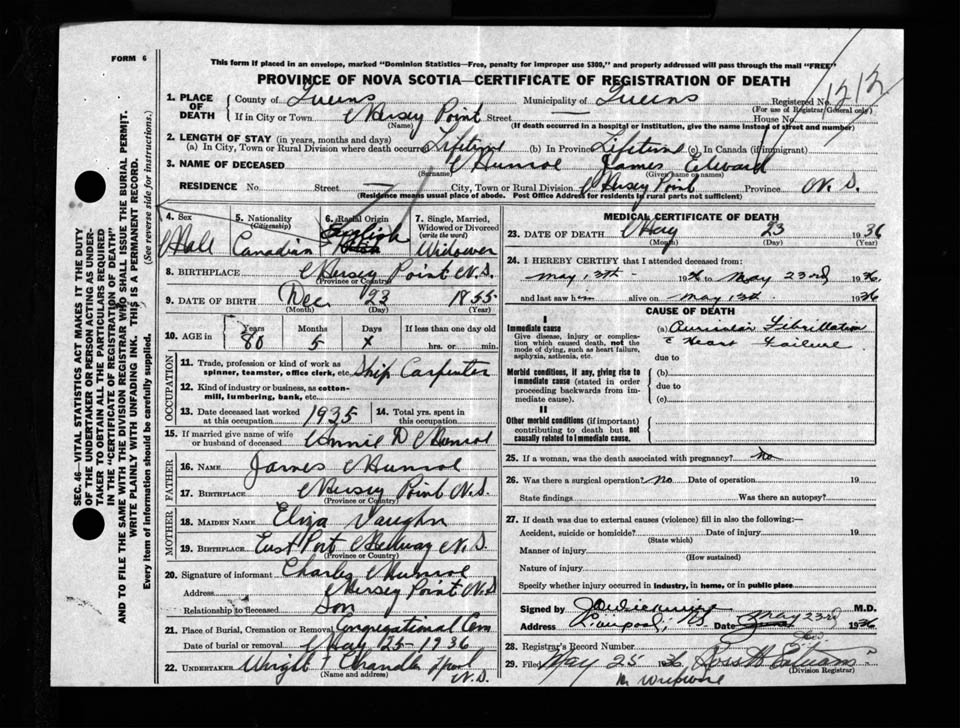 FORM 6
This form if placed in an envelope, marked "Dominion Statistics—Free, penalty for improper use $300," and properly addressed will pass through the mail "FREE"
PROVINCE OF NOVA SCOTIA—CERTIFICATE OF REGISTRATION OF DEATH
1. PLACE OF DEATH
County of Queens Municipality of Queens Registered No. 1212
(For use of Registrar General only)
If in City or Town Mersey Point Street House No.
(Name) (If death occurred in a hospital or institution, give the name instead of street and number)
2. LENGTH OF STAY (in years, months and days)
(a) In City, Town or Rural Division where death occurred Lifetime (b) In Province Lifetime (c) In Canada (if immigrant)
3. NAME OF DECEASED Munroe James Edward
(Surname) (Given name or names)
RESIDENCE No. Street City, Town or Rural Division Mersey Point Province N.S.
(Residence means usual place of abode. Post Office Address for residents in rural parts not sufficient)
4. Sex 5. Nationality 6. Racial Origin 7. Single, Married, Widowed or Divorced
(Citizenship) (write the word)
Male Canadian English Widower
8. BIRTHPLACE Mersey Point N.S.
(Province or Country)
9. DATE OF BIRTH Dec. 23 1855
(Month) (Day) (Year)
10. AGE in Years Months Days If less than one day old
80 5 x hrs. or min.
OCCUPATION
11. Trade, profession or kind of work as spinner, teamster, office clerk, etc. Ship Carpenter
12. Kind of industry or business, as cotton-mill, lumbering, bank, etc.
13. Date deceased last worked at this occupation 1935 14. Total yrs. spent in this occupation
15. If married give name of wife or husband of deceased Annie D Munroe
FATHER
16. NAME James Munroe
17. BIRTHPLACE Mersey Point N.S.
(Province or Country)
MOTHER
18. MAIDEN NAME Eliza Vaughn
19. BIRTHPLACE East Port Medway N.S.
(Province or Country)
20. Signature of informant Charles Munroe
Address Mersey Point N.S
Relationship to deceased Son
21. Place of Burial, Cremation or Removal Congregational Cem
Date of burial or removal May 25-1936
22. UNDERTAKER Wright & Chandler Lpool N.S.
(Name and address)
MEDICAL CERTIFICATE OF DEATH
23. DATE OF DEATH May 23 1936
(Month) (Day) (Year)
24. I HEREBY CERTIFY that I attended deceased from:
May 13th 1936 to May 23rd 1936
and last saw him alive on May 13th 1936
CAUSE OF DEATH
I
Immediate cause
Give disease, injury or complication which caused death, not the mode of dying, such as heart failure, asphyxia, asthenia, etc.
(a) Auricular Fibrillation
c Heart Failure
due to
Morbid conditions, if any, giving rise to immediate cause (stated in order proceeding backwards from immediate cause).
(b)
due to
(c)
II
Other morbid conditions (if important) contributing to death but not causally related to immediate cause.
25. If a woman, was the death associated with pregnancy? No
26. Was there a surgical operation? No Date of operation 19
State findings Was there an autopsy?
27. If death was due to external causes (violence) fill in also the following:—
Accident, suicide or homicide? Date of injury 19
(State which)
Manner of injury
(How sustained)
Nature of injury
Specify whether injury occurred in industry, in home, or in public place
Signed by M.D.
Address Liverpool, N.S. Date May 23rd 1936
28. Registrar's Record Number
29. Filed May 25 1936,
(Division Registrar)
SEC. 46—VITAL STATISTICS ACT MAKES IT THE DUTY
OF THE UNDERTAKER OR PERSON ACTING AS UNDER-
TAKER TO OBTAIN ALL THE PARTICULARS REQUIRED
IN THE "CERTIFICATE OF REGISTRATION OF DEATH"
AND TO FILE THE SAME WITH THE DIVISION REGISTRAR WHO SHALL ISSUE THE BURIAL PERMIT.
WRITE PLAINLY WITH UNFADING INK. THIS IS A PERMANENT RECORD.
Every item of information should be carefully supplied. (See reverse side for instructions.)